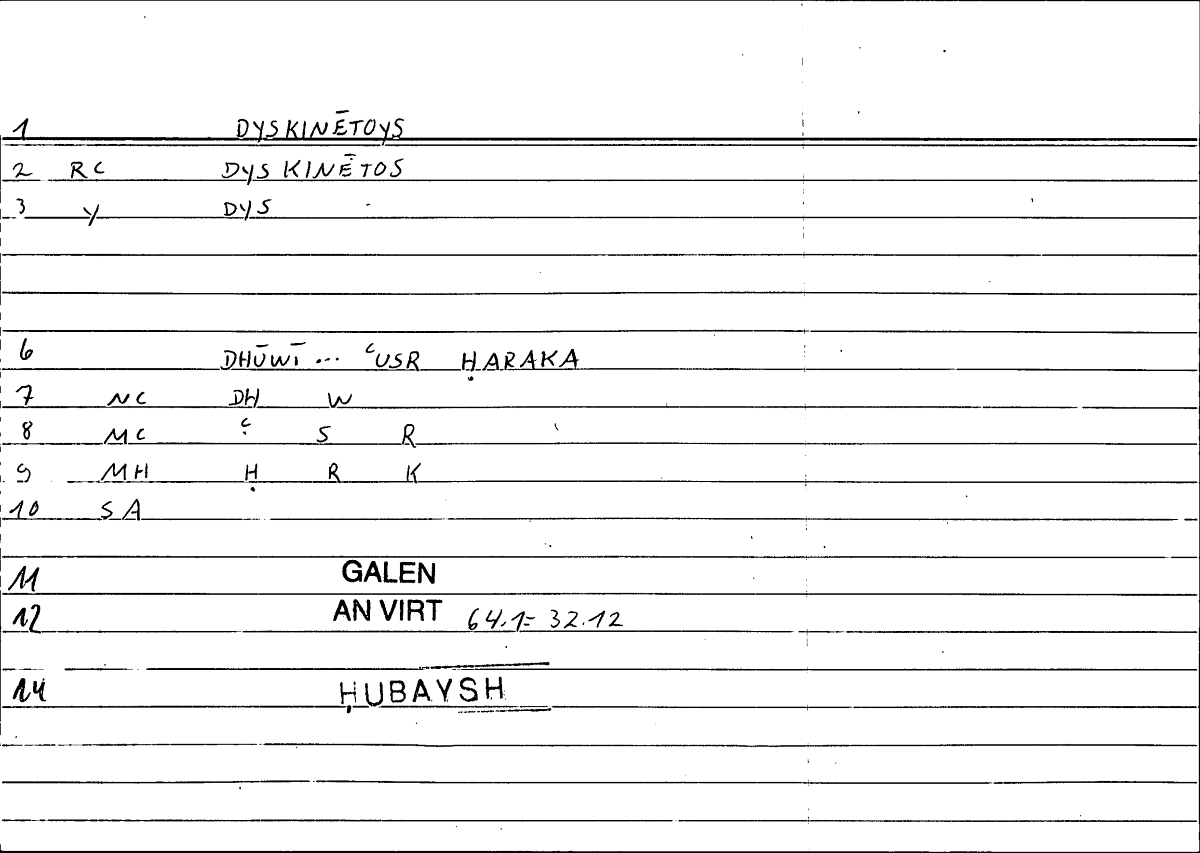 1 DYSKINĒTOYS
2 RC DYSKINĒTOS
3 Y DYS
6 DHŪWĪ ... ʿUSR ḤARAKA
7 NC DH W
8 MC ʿ S R
9 MH Ḥ R K
10 SA
11 GALEN
12 AN VIRT 64.1 = 32.12
14 ḤUBAYSH